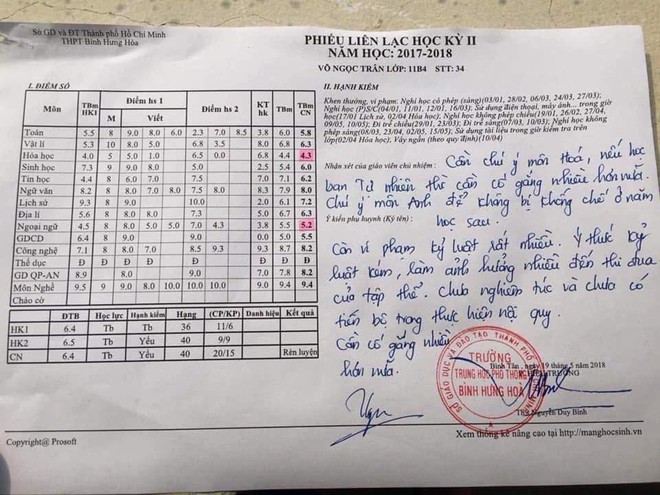 Sở GD và ĐT Thành phố Hồ Chí Minh
THPT Bình Hưng Hòa
PHIẾU LIÊN LẠC HỌC KỲ II
NĂM HỌC: 2017-2018
VÕ NGỌC TRÂN LỚP: 11B4 STT: 34
I. ĐIỂM SỐ
Môn TBm HK1 Điểm hs 1 Điểm hs 2 KT hk TBm TBm CN
M Viết
Toán 5.5 8 9.0 8.0 6.0 2.3 7.0 8.5 3.8 6.0 5.8
Vật lí 5.3 10 8.0 5.0 6.8 3.5 8.0 6.8 6.3
Hóa học 4.0 5 5.0 1.0 6.0 0.0 6.8 4.4 4.3
Sinh học 7.3 9 9.0 8.0 5.0 2.5 5.4 6.0
Tin học 4.4 8 7.0 7.5 7.5 7.1 6.2
Ngữ văn 8.2 8 8.0 7.0 8.0 7.5 8.0 8.3 7.9 8.0
Lịch sử 9.3 9.0 10.0 2.0 6.1 7.2
Địa lí 5.6 8 8.0 8.0 7.3 5.0 6.7 6.3
Ngoại ngữ 4.5 8 8.0 5.0 5.0 7.0 4.3 3.8 5.5 5.2
GDCD 6.4 9.0 9.0 0.0 5.0 5.5
Công nghệ 7.1 8 8.0 7.0 8.5 9.3 9.3 8.7 8.2
Thể dục Đ Đ Đ Đ Đ Đ
GD QP-AN 8.9 8.0 9.0 7.0 7.8 8.2
Môn Nghề 9.5 9 9.0 8.0 10.0 10.0 10.0 9.0 9.4 9.4
Chào cờ
ĐTB Học lực Hạnh kiểm Hạng (CP/KP) Danh hiệu Kết quả
HK1 6.4 Tb Tb 36 11/6
HK2 6.5 Tb Yếu 40 9/9
CN 6.4 Tb Yếu 40 20/15 Rèn luyện
Copyright@ Prosoft
II. HẠNH KIỂM
Khen thưởng, vi phạm: Nghỉ học có phép (sáng)(03/01, 28/02, 06/03, 24/03, 27/03);
Nghỉ học (P)S/C(04/01, 11/01, 12/01, 16/03); Sử dụng điện thoại, máy ảnh... trong giờ
học(17/01 Lịch sử, 02/04 Hóa học); Nghỉ học không phép chiều(19/01, 26/02, 27/04,
09/05, 10/05); Đi trễ chiều(29/01, 23/03); Đi trễ sáng(07/03, 10/03); Nghỉ học không
phép sáng(08/03, 23/04, 02/05, 15/05); Sử dụng tài liệu trong giờ kiểm tra trên
lớp(02/04 Hóa học). Váy ngắn (theo quy định)(10/04)
Nhận xét của giáo viên chủ nhiệm: Cần chú ý môn Hoá, nếu học
ban Tự nhiên thì cần cố gắng nhiều hơn nữa.
Chú ý môn Anh để không bị khống chế ở năm
Ý kiến phụ huynh (Ký tên): học sau.
Còn vi phạm kỷ luật rất nhiều. Ý thức kỷ
luật kém, làm ảnh hưởng nhiều đến thi đua
của tập thể. Chưa nghiêm túc và chưa có
tiến bộ trong thực hiện nội quy.
Cần cố gắng nhiều
hơn nữa.
Bình Tân, ngày 19 tháng 5 năm 2018
HIỆU TRƯỞNG
SỞ GIÁO DỤC VÀ ĐÀO TẠO THÀNH PHỐ
TRƯỜNG
TRUNG HỌC PHỔ THÔNG
BÌNH HƯNG HOÀ
ThS Nguyễn Duy Bình
Xem thống kê nâng cao tại http://manghocsinh.vn